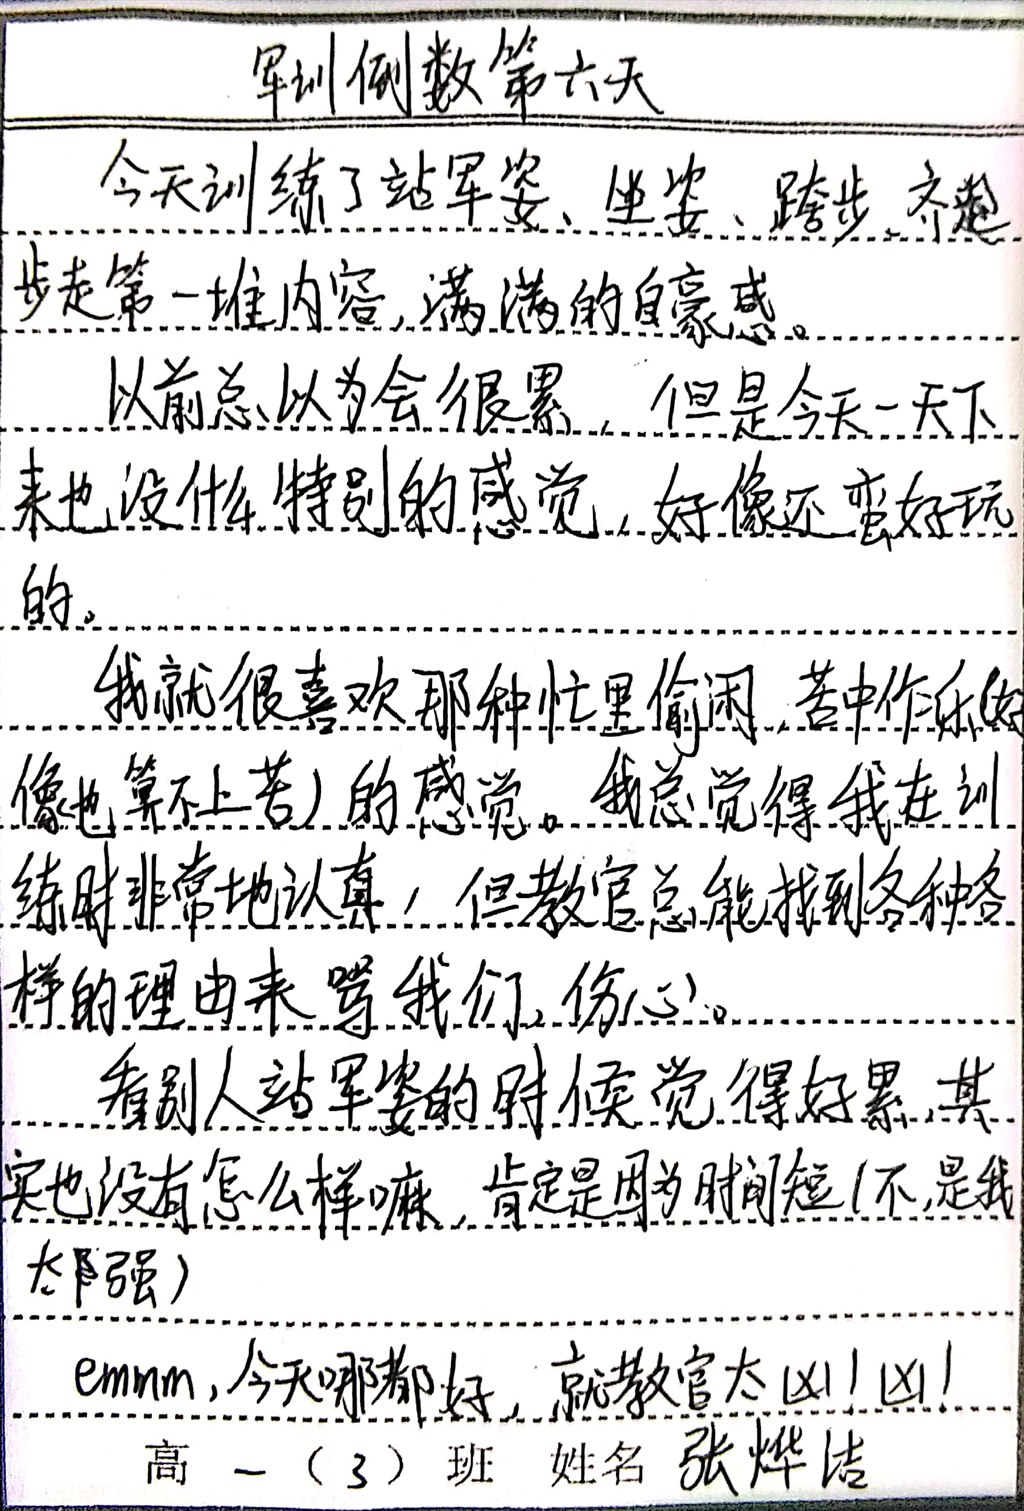 军训倒数第六天
今天训练了站军姿、坐姿、跨步、齐
步走第一堆内容,满满的自豪感。
以前总以为会很累,但是今天一天下
来也没什么特别的感觉,好像还蛮好玩
的。
我就很喜欢那种忙里偷闲,苦中作乐(好
像也算不上苦)的感觉。我总觉得我在训
练时非常地认真,但教官总能找到各种各
样的理由来骂我们,伤心。
看别人站军姿的时候觉得好累,其
实也没有怎么样嘛,肯定是因为时间短(不,是我
太强)
emmm,今天哪都好,就教官太凶!凶!
高一(3)班 姓名 张烨洁